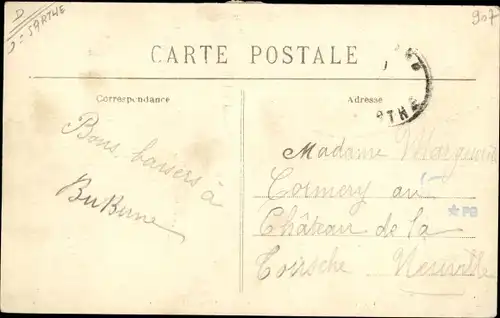 D
D = SARTHE
907
CARTE POSTALE
Correspondance
Adresse
RTHE
Bons baisers à
Madame Marguerite
Cormery au
PG
Château de la
Neuville